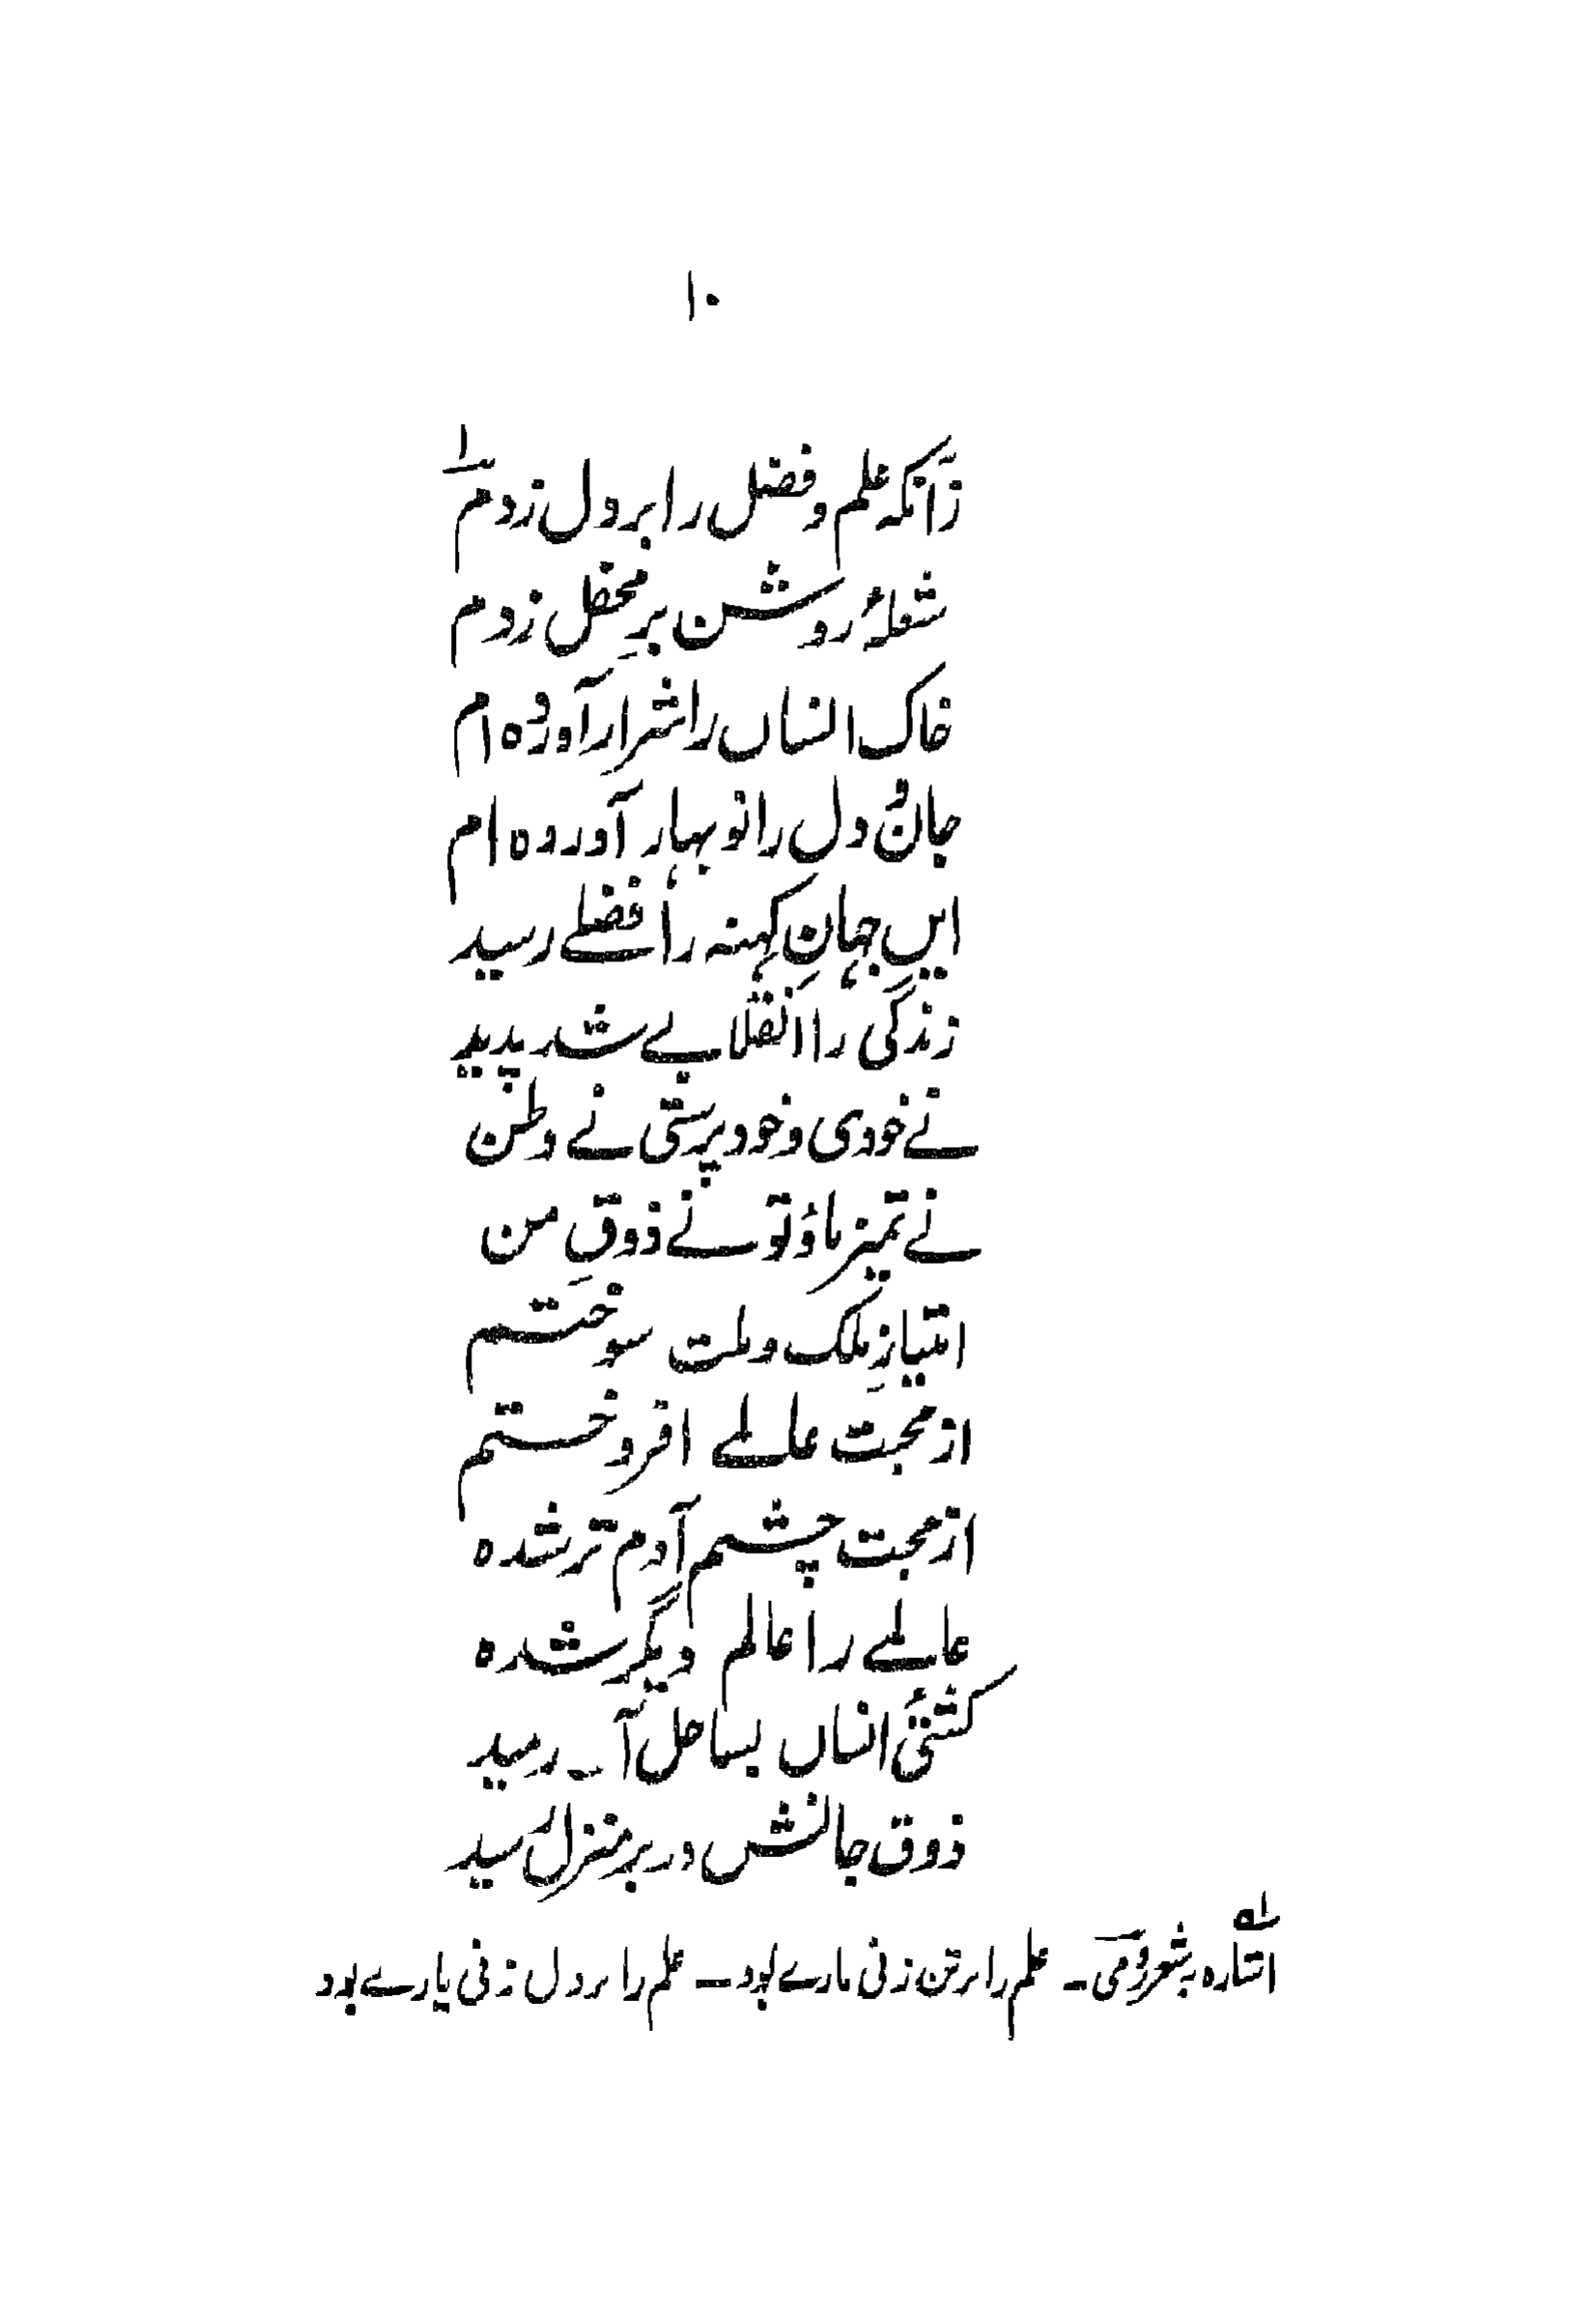 ۱۰
زآنکہ علم و فضل را بر دل زدم ۱
شعلۂ روشن برِ محفل زدم
خاک انساں را شرار آوردہ ام
جان و دل را نو بہار آوردہ ام
ایں جہانِ کہنہ را فضلے رسید
زندگی را انقلابے شد پدید
نے خودی و خود پرستی نے وطن
نے تمیز ماؤ تو نے ذوقِ من
امتیازِ ملک و ملت سوختم
از محبت عالمے افروختم
از محبت چشم آدم تر شدہ
عالمے را عالم دیگر شدہ
کشتئ انساں بساحل آرمید
ذوق جانش در بر منزل رسید
۱ اشارہ بہ شعر رومی ۔ علم را بر تن زنی مارے بود ۔ علم را بر دل زنی یارے بود